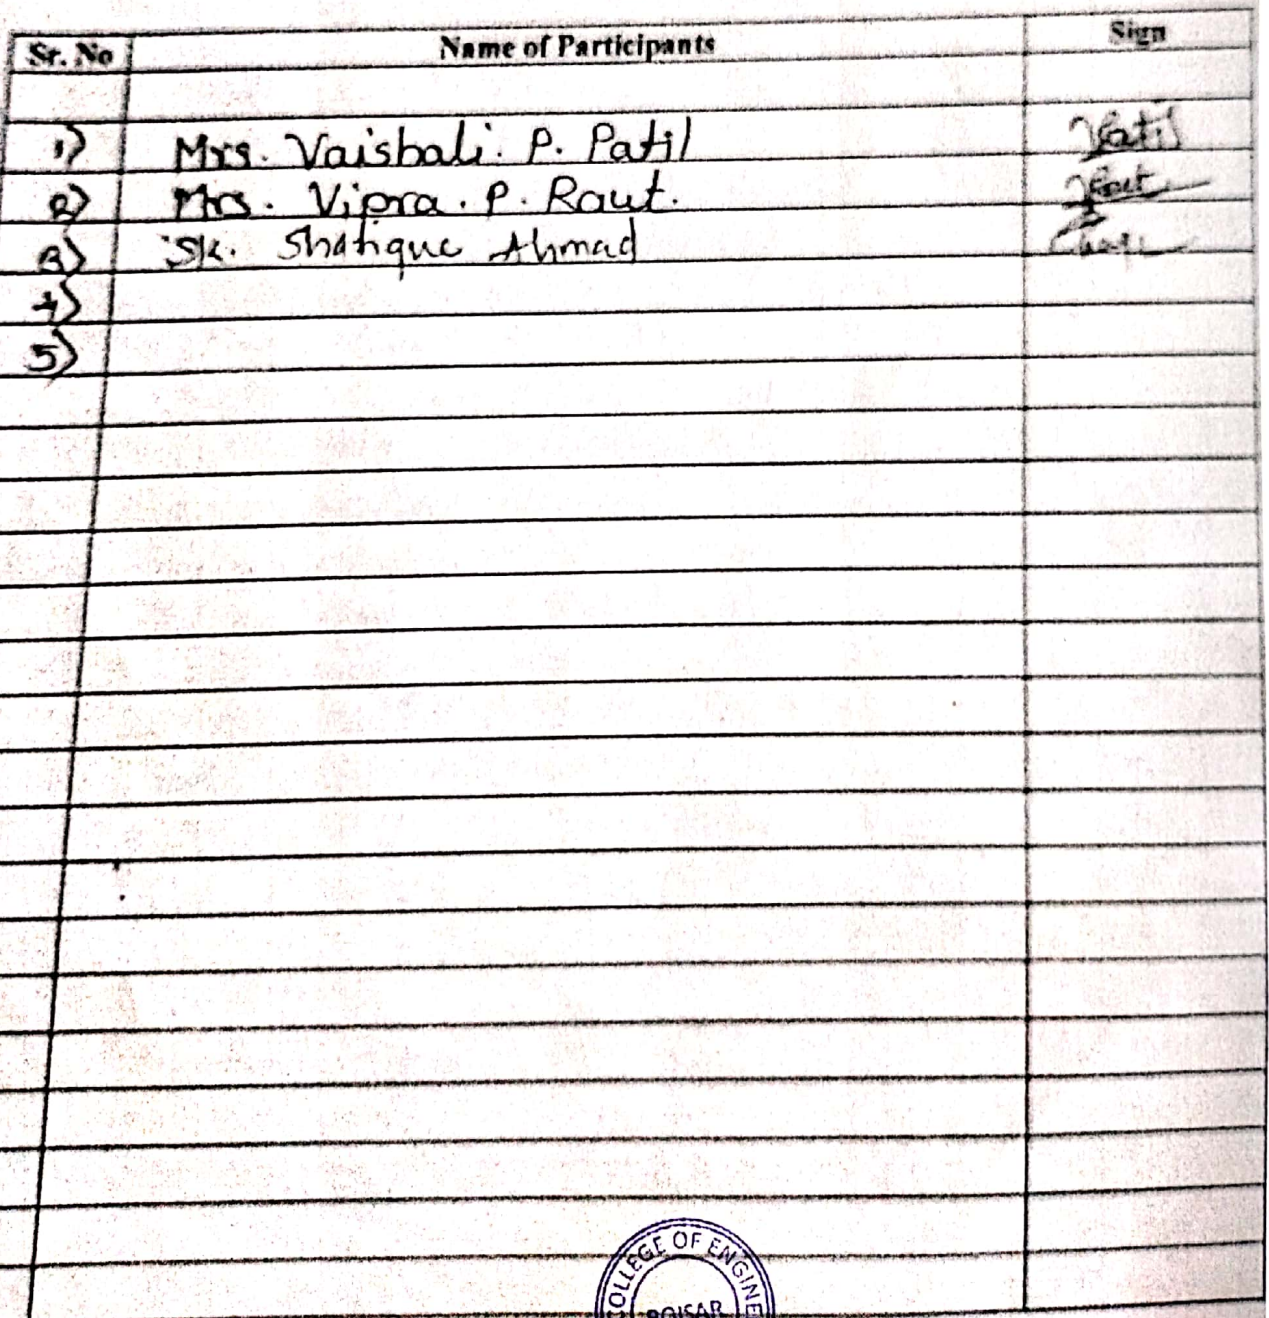 Sr. No Name of Participants Sign
1) Mrs. Vaishali. P. Patil Patil
2) Mrs. Vipra. P. Raut. Raut
3) Sk. Shafique Ahmad
4)
5)
COLLEGE OF ENGINE
BOISAR